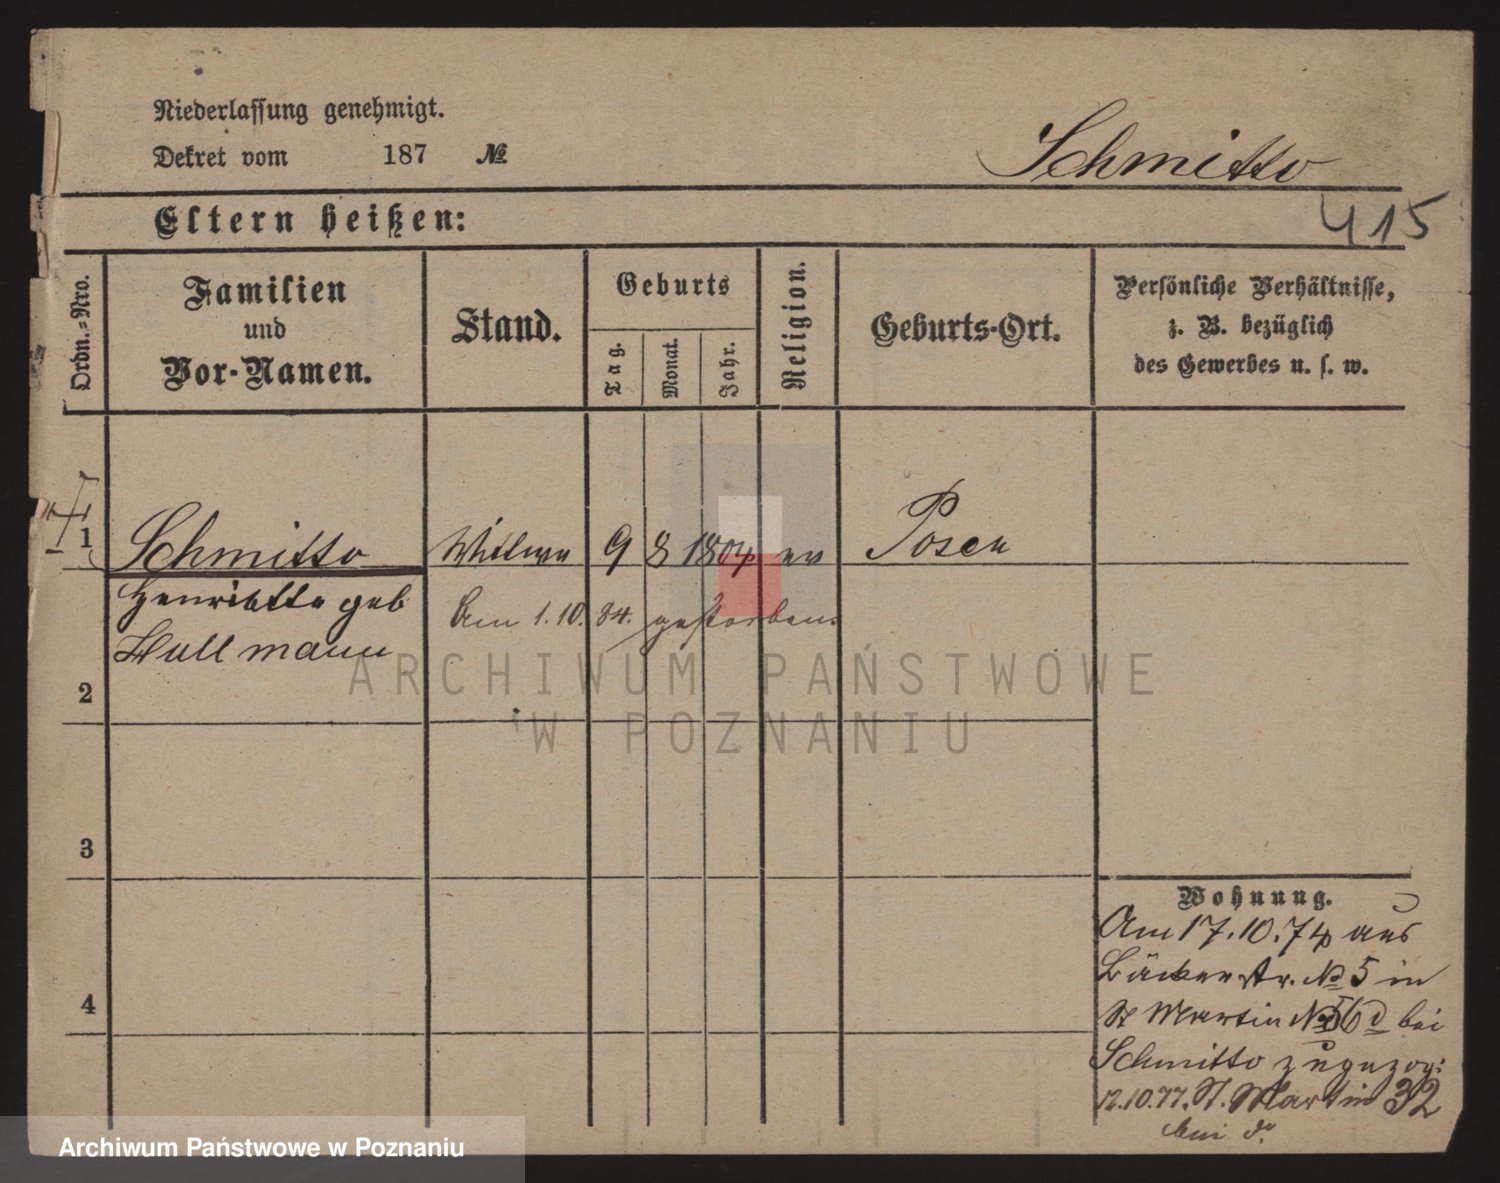 Niederlassung genehmigt.
Dekret vom 187 №
Schmitto
415
Eltern heißen:
Ordn.=Nro.
Familien
und
Vor-Namen.
Stand.
Geburts
Tag.
Monat.
Jahr.
Religion.
Geburts-Ort.
Persönliche Verhältnisse,
z. B. bezüglich
des Gewerbes u. s. w.
1 Schmitto Wittwe 9 8 1804 ev Posen
Henriette geb
Am 1.10.84. gestorben.
mann
2
3
4
Wohnung.
Am 17.10.74 aus
Bäckerstr. № 5 in
St Martin № 56 d bei
Schmitto zugezog:
12.10.77. St. Martin 32
bei do
ARCHIWUM PAŃSTWOWE
W POZNANIU
Archiwum Państwowe w Poznaniu